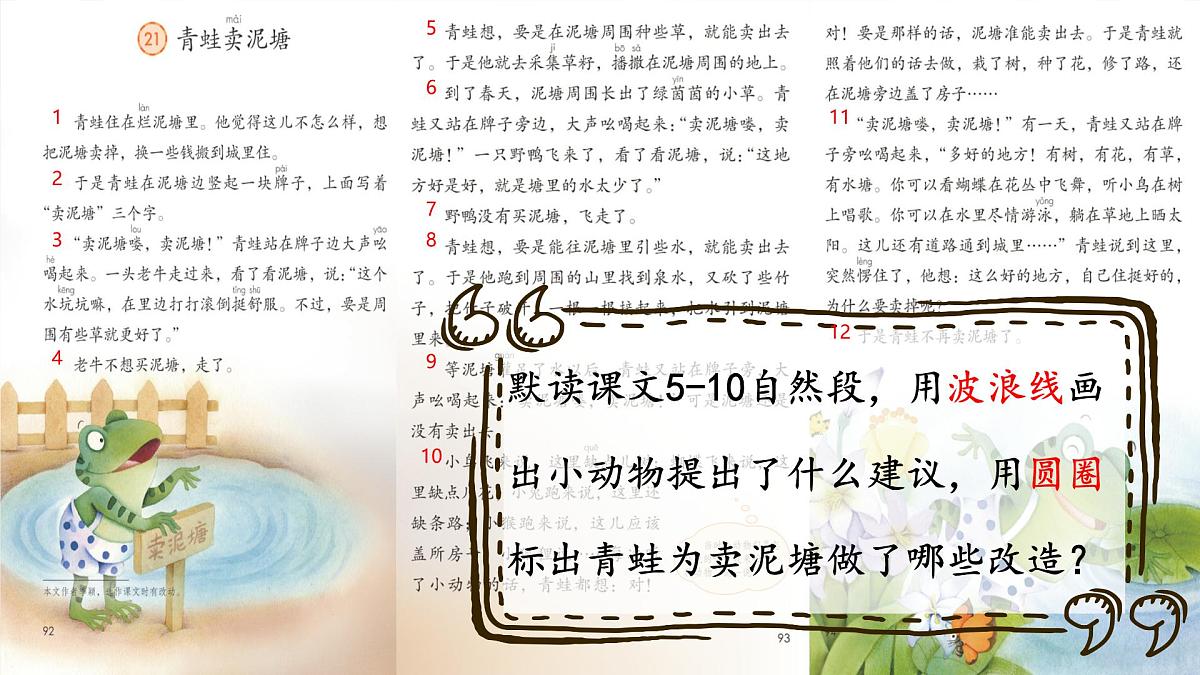 mài
21 青蛙卖泥塘
làn
1 青蛙住在烂泥塘里。他觉得这儿不怎么样，想
把泥塘卖掉，换一些钱搬到城里住。
pái
2 于是青蛙在泥塘边竖起一块牌子，上面写着
“卖泥塘”三个字。
lou yāo
3 “卖泥塘喽，卖泥塘！”青蛙站在牌子边大声吆
hè
喝起来。一头老牛走过来，看了看泥塘，说：“这个
kēng tǐng shū
水坑坑嘛，在里边打打滚倒挺舒服。不过，要是周
围有些草就更好了。”
4 老牛不想买泥塘，走了。
卖泥塘
92
5 青蛙想，要是在泥塘周围种些草，就能卖出去
jí bō sǎ
了。于是他就去采集草籽，播撒在泥塘周围的地上。
yīn
6 到了春天，泥塘周围长出了绿茵茵的小草。青
蛙又站在牌子旁边，大声吆喝起来：“卖泥塘喽，卖
泥塘！”一只野鸭飞来了，看了看泥塘，说：“这地
方好是好，就是塘里的水太少了。”
7 野鸭没有买泥塘，飞走了。
8 青蛙想，要是能往泥塘里引些水，就能卖出去
了。于是他跑到周围的山里找到泉水，又砍了些竹
子，把竹子破开，一根一根接起来，把水引到泥塘
里来
9 等泥塘灌足了水以后，青蛙又站在牌子旁边，大
声吆喝起来：“卖泥塘喽，卖泥塘！”可是泥塘还是
没有卖出去
quē
10 小鸟飞来说，这里缺点儿树；蝴蝶飞来说，这
里缺点儿花；小兔跑来说，这里还
缺条路；小猴跑来说，这儿应该
盖所房子
了小动物的话，青蛙都想：对！
93
对！要是那样的话，泥塘准能卖出去。于是青蛙就
照着他们的话去做，栽了树，种了花，修了路，还
在泥塘旁边盖了房子……
11 “卖泥塘喽，卖泥塘！”有一天，青蛙又站在牌
子旁吆喝起来，“多好的地方！有树，有花，有草，
有水塘。你可以看蝴蝶在花丛中飞舞，听小鸟在树
yǒng
上唱歌。你可以在水里尽情游泳，躺在草地上晒太
阳。这儿还有道路通到城里……”青蛙说到这里，
lèng
突然愣住了，他想：这么好的地方，自己住挺好的，
为什么要卖掉呢？
12 于是青蛙不再卖泥塘了。
默读课文5-10自然段，用波浪线画
出小动物提出了什么建议，用圆圈
标出青蛙为卖泥塘做了哪些改造？